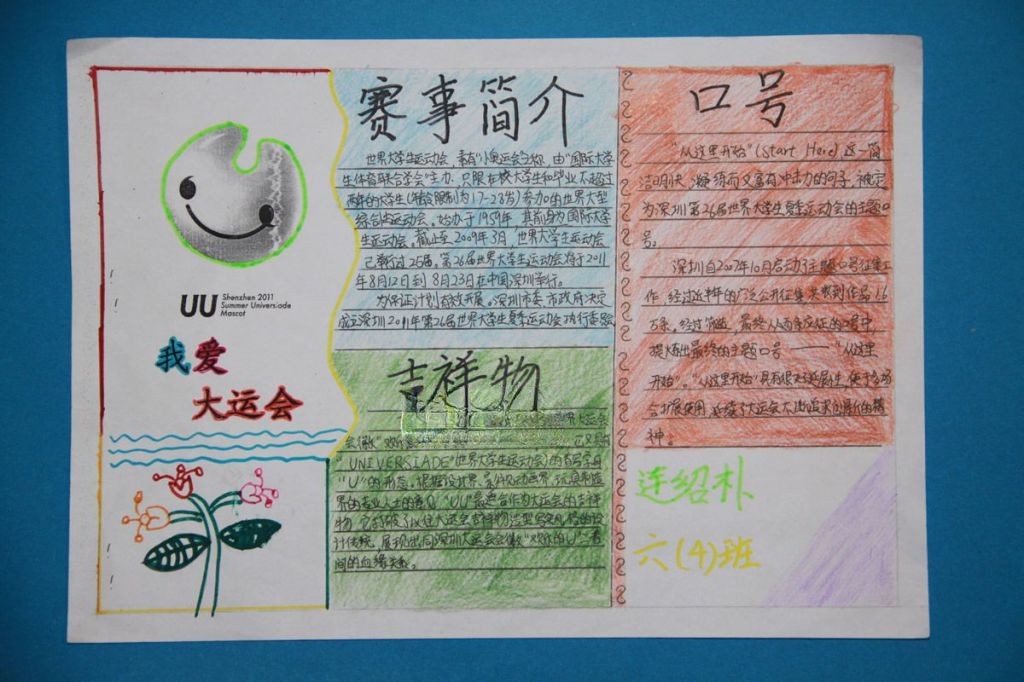 UU Shenzhen 2011
Summer Universiade
Mascot
我爱
大运会
赛事简介
世界大学生运动会，素有“小奥运会”之称，由“国际大学
生体育联合会”主办，只限在校大学生和毕业不超过
两年的大学生（年龄限制为17-28岁）参加的世界大型
综合性运动会。始办于1959年，其前身为国际大学
生运动会。截止至2009年3月，世界大学生运动会
已举行过25届。第26届世界大学生运动会将于2011
年8月12日到8月23日在中国深圳举行。
为保证计划有效开展，深圳市委、市政府决定
成立深圳2011年第26届世界大学生夏季运动会执行委员会
吉祥物
世界大运会
会徽“欢
“UNIVERSIADE”（世界大学生运动会）的首写字母
“U”的形态。根据设计界、动画界、玩具制造
界的专业人士的意见，“UU”最适合作为大运会的吉祥
物。以往大运会吉祥物造型写实风格的设
计传统，展现出同深圳大运会会徽“欢乐的U”之
间的血缘关系。
口号
“从这里开始”（Start Here）这一简
洁明快、凝练而又富有冲击力的句子，被定
为深圳第26届世界大学生夏季运动会的主题口
号。
深圳自2007年10月启动主题口号征集工
作，经过近半年的广泛公开征集，共收到作品1.6
万条。经过筛选，最终从两条应征的口号中，
提炼出最终的主题口号——“从这里
开始”。“从这里开始”具有很大延展性，便于多场
合扩展使用，延续了大运会不断追求创新的精
神。
连绍朴
六(4)班